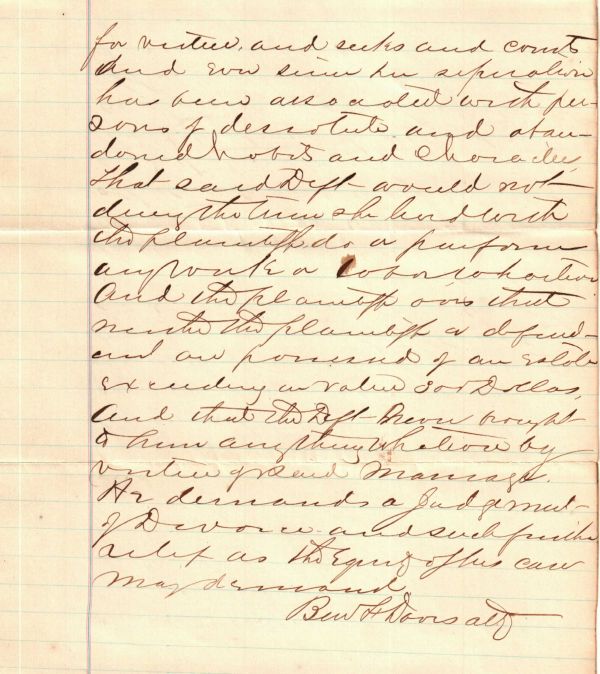 for virtue, and seeks and courts
And ever since her seperation
has been associated with per-
sons of desolute and aban-
doned habits and Character,
that said Deft would not
during the time she lived with
the plaintiff do or perform
any work or labor
And the plaintiff avers that
neither the plaintiff or defend-
ant are possessed of an estate
exceeding in value 300 Dollars,
And that the Deft never brought
to him anything whatever by
virtue of said Marriage.
He demands a Judgment
of Divorce and such further
relief as the Equity of his case
may demand
Benj F Davis atty